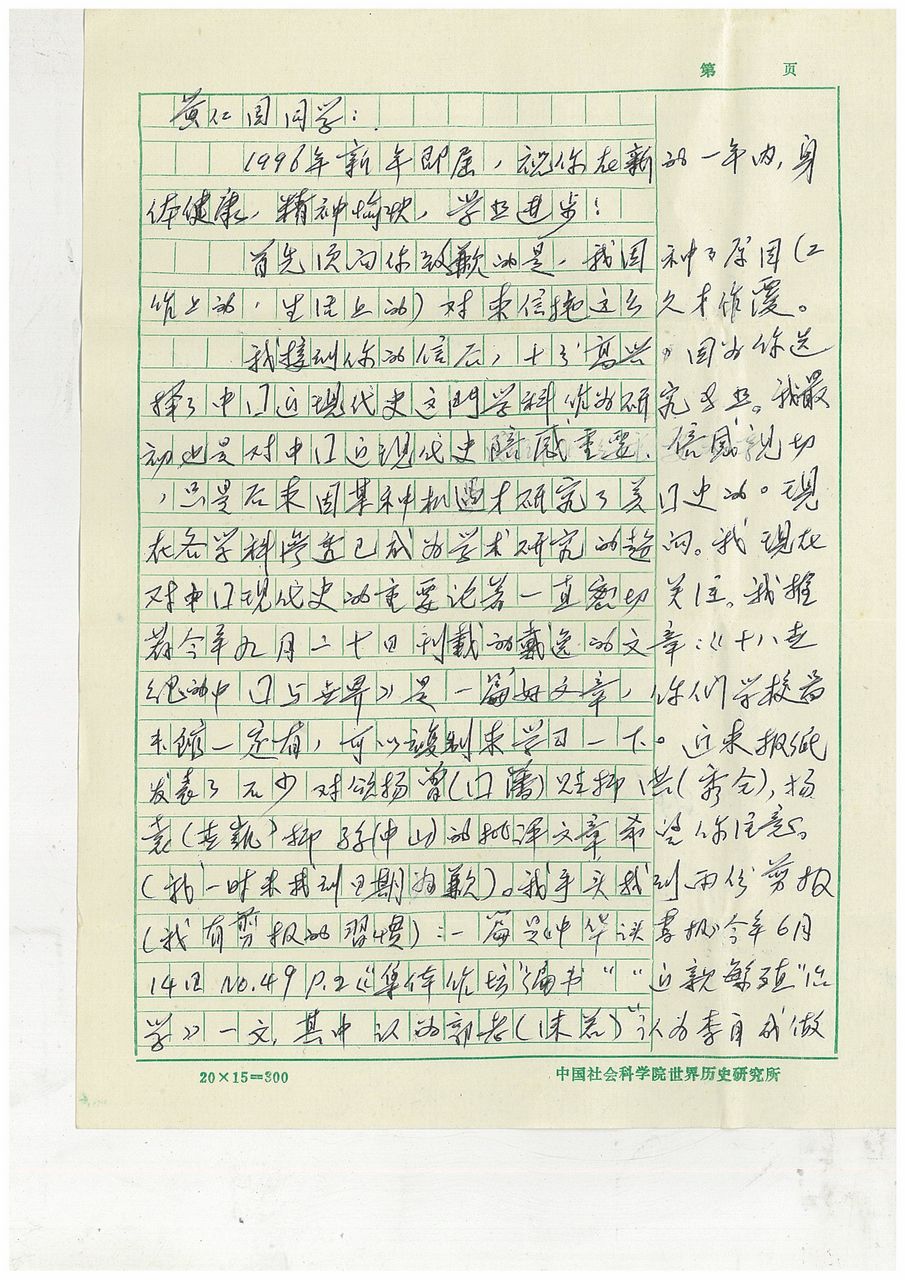 第 页
黄仁国同学：
1996年新年即届，祝你在新的一年内，身
体健康，精神愉快，学业进步！
首先须向你致歉的是，我因种々原因（工
作上的，生活上的）对来信拖这么久才作覆。
我接到你的信后，十分高兴，因为你选
择了中囗近现代史这門学科作为研究专业。我最
初也是对中囗近现代史 感重要、倍感親切
，只是后来因某种机遇才研究了美囗史的。现
在各学科渗透已成为学术研究的趋向。我现在
对中囗现代史的重要论著一直密切关注。我推
荐今年九月二十日刊載的戴逸的文章：《十八世
纪的中囗与世界》是一篇好文章，你们学校图
书館一定有，可以複制来学习一下。近来报纸
发表了不少对颂扬曾（囗藩）贬抑洪（秀全），扬
袁（世凱）抑孙（中山）的批评文章希望你注意。
（我一时未找到日期为歉）。我手头找到两份剪报
（我有剪报的習慣）：一篇是《中华读書报》今年6月
14日 No.49 P.2《"集体作坊"编书""近親繁殖"治
学》一文，其中 郭老（沫若）"认为李自成做
20×15=300 中国社会科学院世界历史研究所